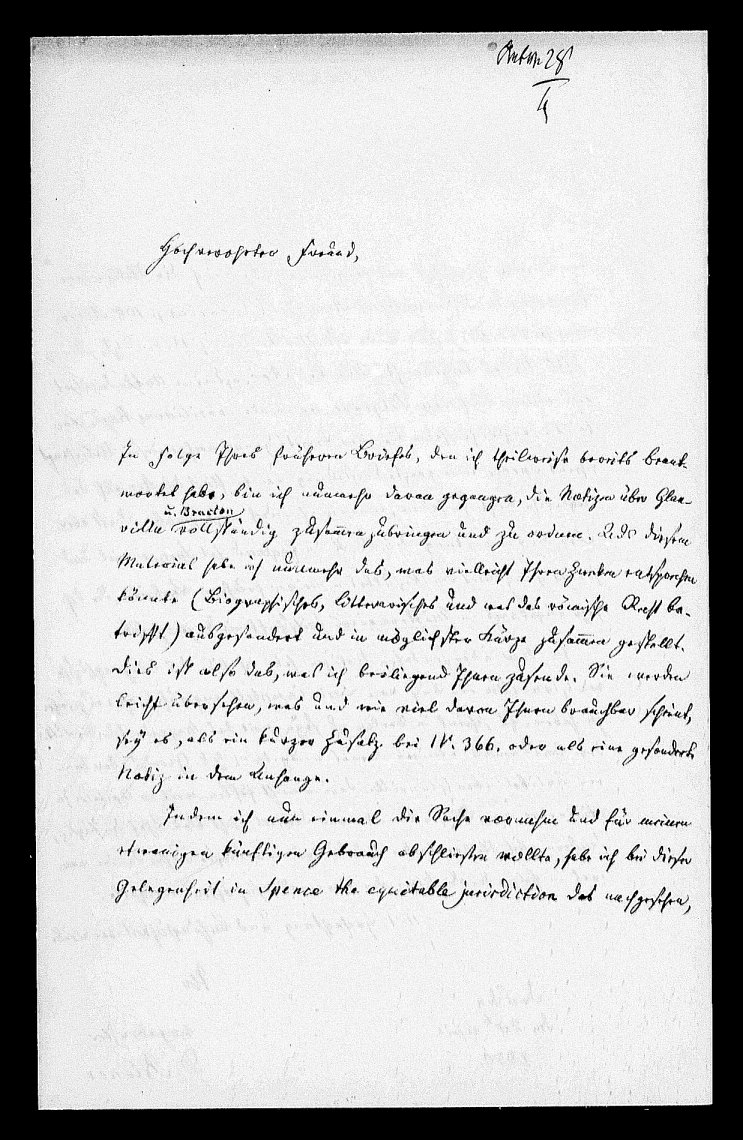 Antw. 28
4
Hochverehrter Freund,
In Folge Ihres früheren Briefes, den ich theilweise bereits beant-
wortet habe, bin ich nunmehr daran gegangen, die Notizen über Glan-
villa u. Bracton vollständig zusammen zubringen und zu ordnen. Aus diesem
Material habe ich nunmehr das, was vielleicht Ihren Zwecken entsprechen
könnte (Biographisches, litterarisches und was das römische Recht be-
trifft) ausgesondert und in möglichster Kürze zusammen gestellt.
Dies ist also das, was ich beiliegend Ihnen zusende. Sie werden
leicht übersehen, was und wie viel davon Ihnen brauchbar scheint,
sey es, als ein kurzer Zusatz bei N. 366. oder als eine gesonderte
Notiz in dem Anhange.
Indem ich nun einmal die Sache vornehm und für meinen
etwanigen künftigen Gebrauch abschließen wollte, habe ich bei dieser
Gelegenheit in Spence the equitable jurisdiction das nachgesehen,